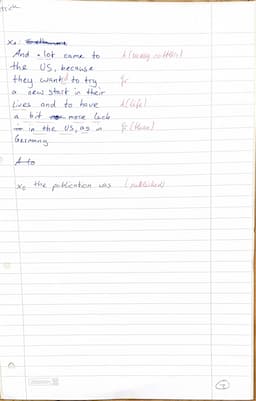 And a lot came to
the US, because
they wanted to try
gr
a new start in their
lives and to have
A (life)
a bit more luck
in the US, as in
gr (than)
Germany
A to
the publication was (published)